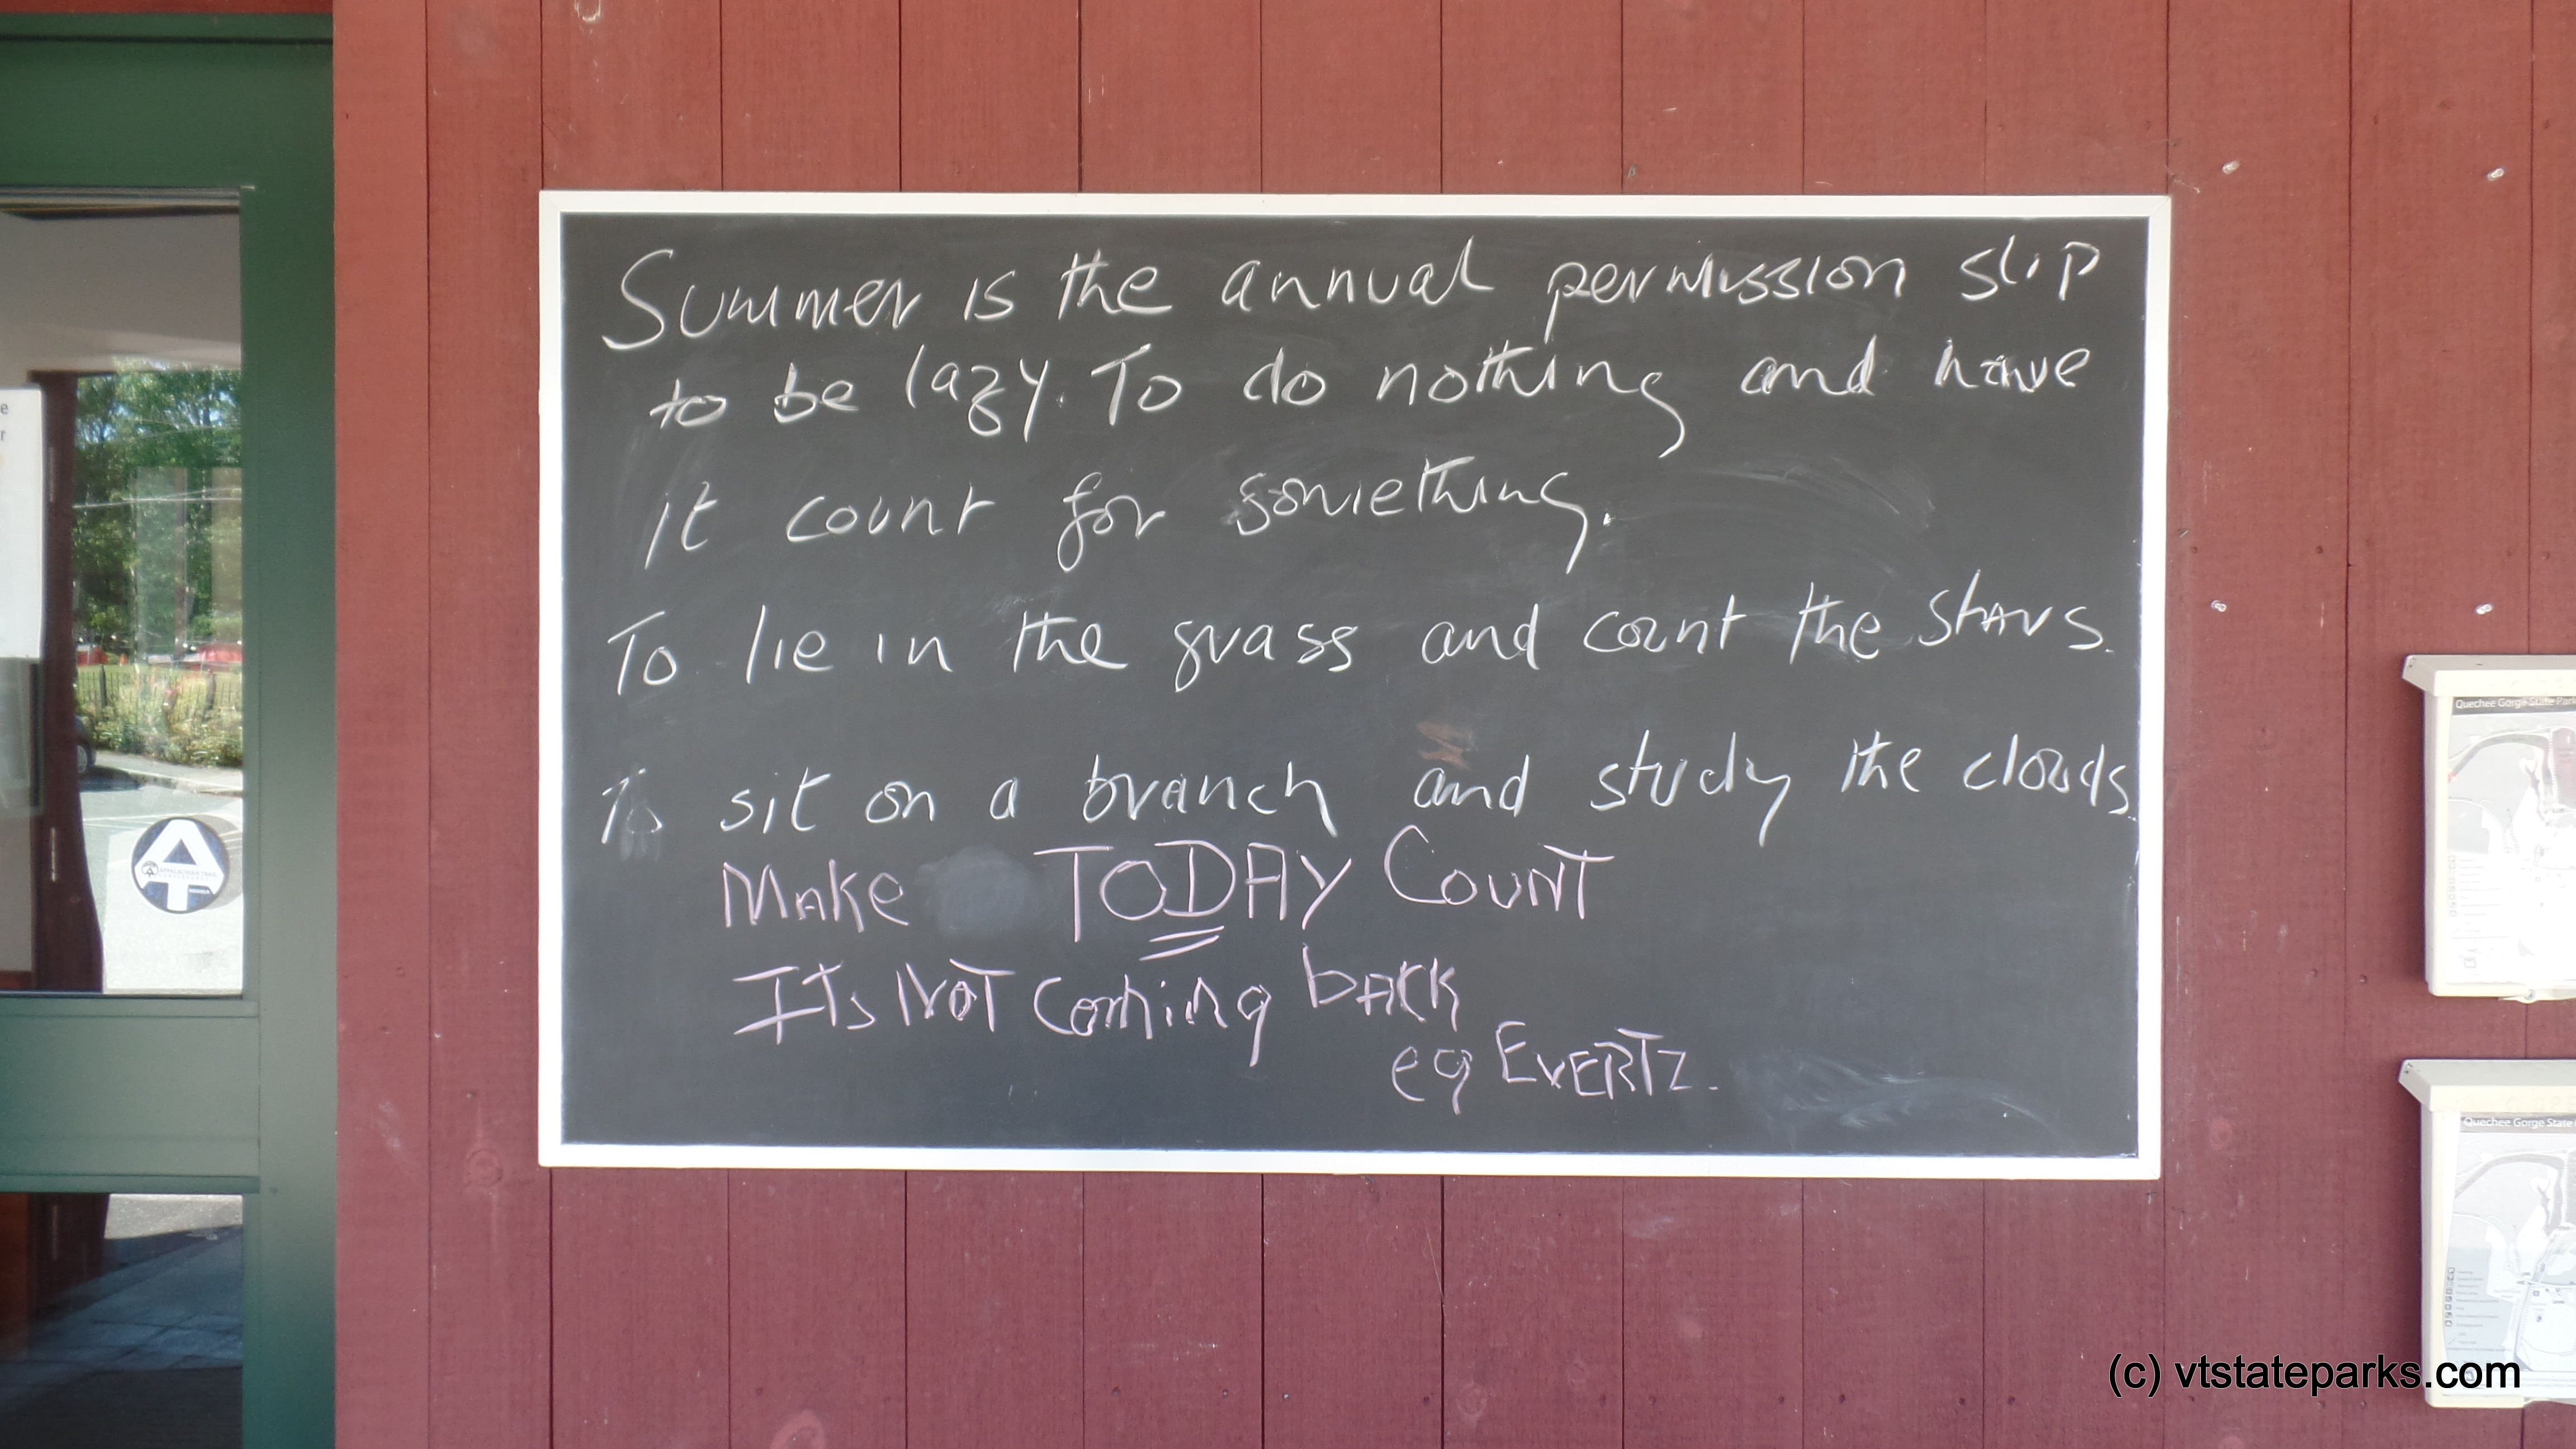 Summer is the annual permission slip
to be lazy. To do nothing and have
it count for something.
To lie in the grass and count the stars.
To sit on a branch and study the clouds.
Make TODAY COUNT
ITs NOT Coming bACK
eg EVERTZ.
Quechee Gorge State Park
Quechee Gorge State
APPALACHIAN TRAIL
(c) vtstateparks.com